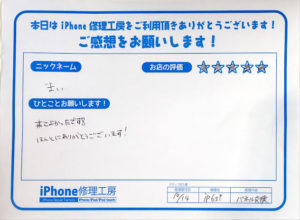 本日は iPhone 修理工房をご利用頂きありがとうございます!
ご感想をお願いします!
ニックネーム
お店の評価
まい
ひとことお願いします!
来てよかったです!
ほんとにありがとうございます!
iPhone修理工房
iPhone/iPad/iPod touch